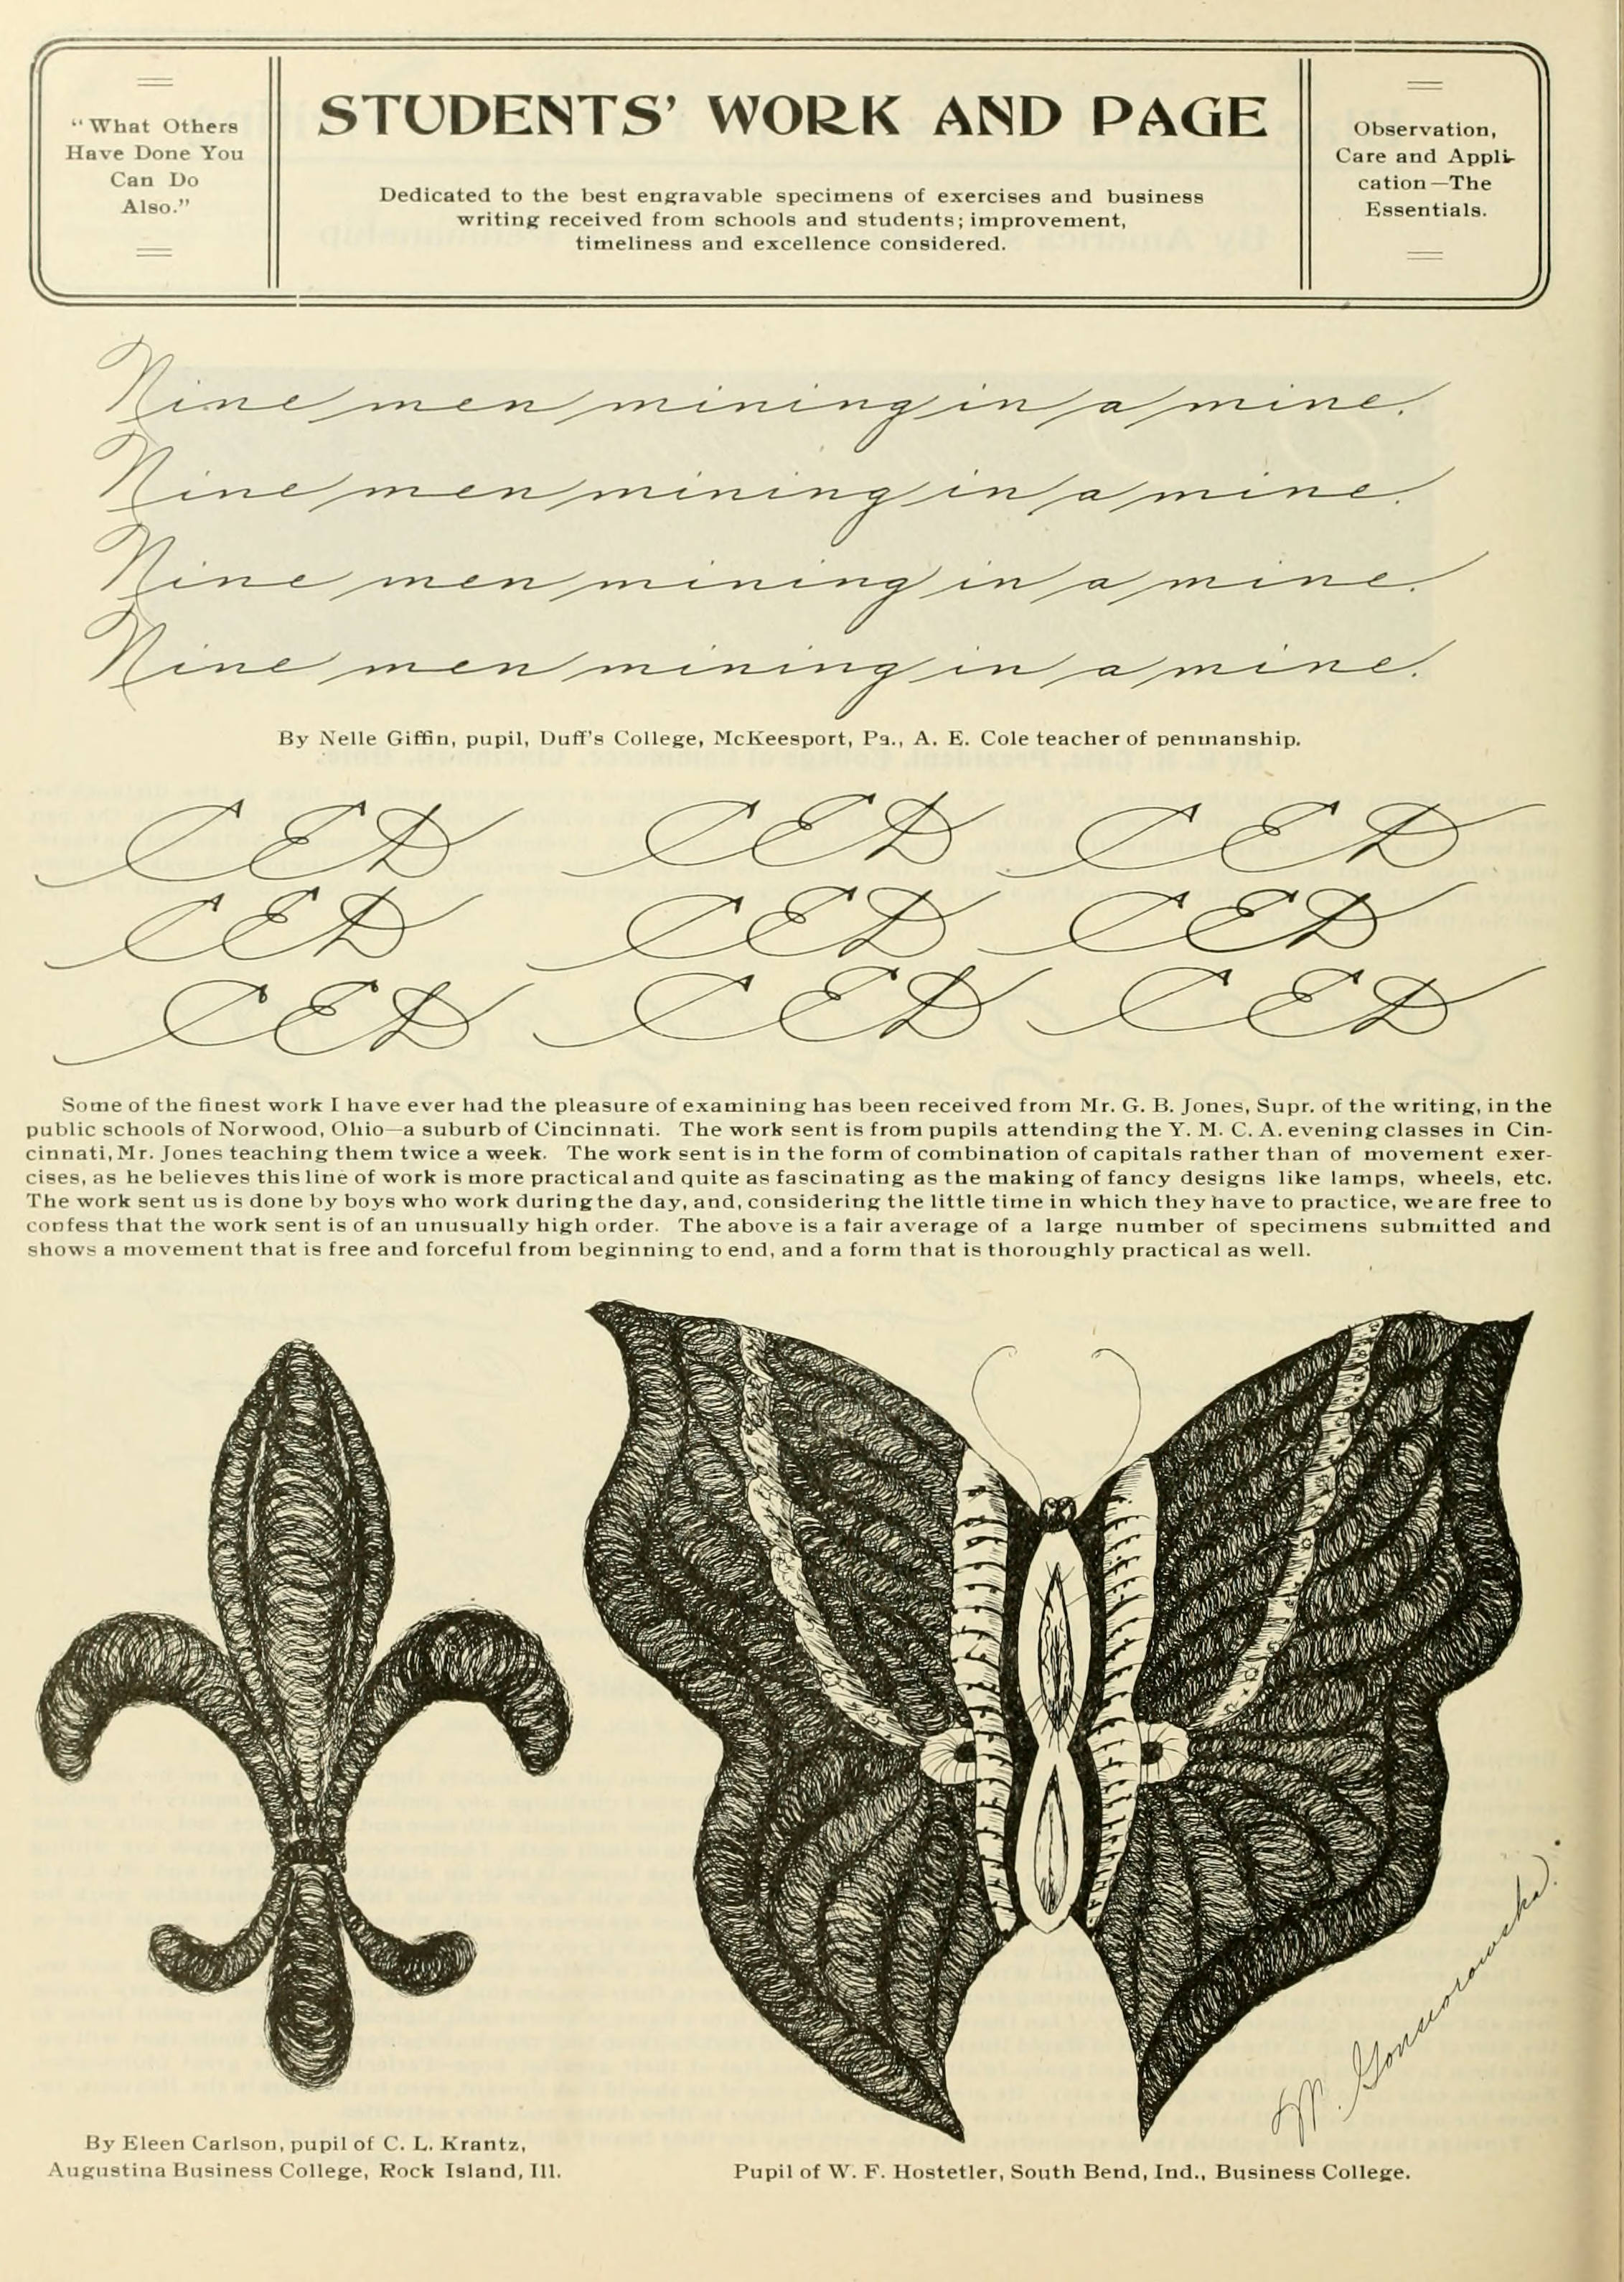 "What Others
Have Done You
Can Do
Also."
STUDENTS' WORK AND PAGE
Dedicated to the best engravable specimens of exercises and business
writing received from schools and students; improvement,
timeliness and excellence considered.
Observation,
Care and Appli-
cation—The
Essentials.
Nine men mining in a mine.
Nine men mining in a mine.
Nine men mining in a mine.
Nine men mining in a mine.
By Nelle Giffin, pupil, Duff's College, McKeesport, Pa., A. E. Cole teacher of penmanship.
CED CED CED
CED CED CED
CED CED CED
Some of the finest work I have ever had the pleasure of examining has been received from Mr. G. B. Jones, Supr. of the writing, in the
public schools of Norwood, Ohio—a suburb of Cincinnati. The work sent is from pupils attending the Y. M. C. A. evening classes in Cin-
cinnati, Mr. Jones teaching them twice a week. The work sent is in the form of combination of capitals rather than of movement exer-
cises, as he believes this line of work is more practical and quite as fascinating as the making of fancy designs like lamps, wheels, etc.
The work sent us is done by boys who work during the day, and, considering the little time in which they have to practice, we are free to
confess that the work sent is of an unusually high order. The above is a fair average of a large number of specimens submitted and
shows a movement that is free and forceful from beginning to end, and a form that is thoroughly practical as well.
By Eileen Carlson, pupil of C. L. Krantz,
Augustina Business College, Rock Island, Ill.
Pupil of W. F. Hostetler, South Bend, Ind., Business College.